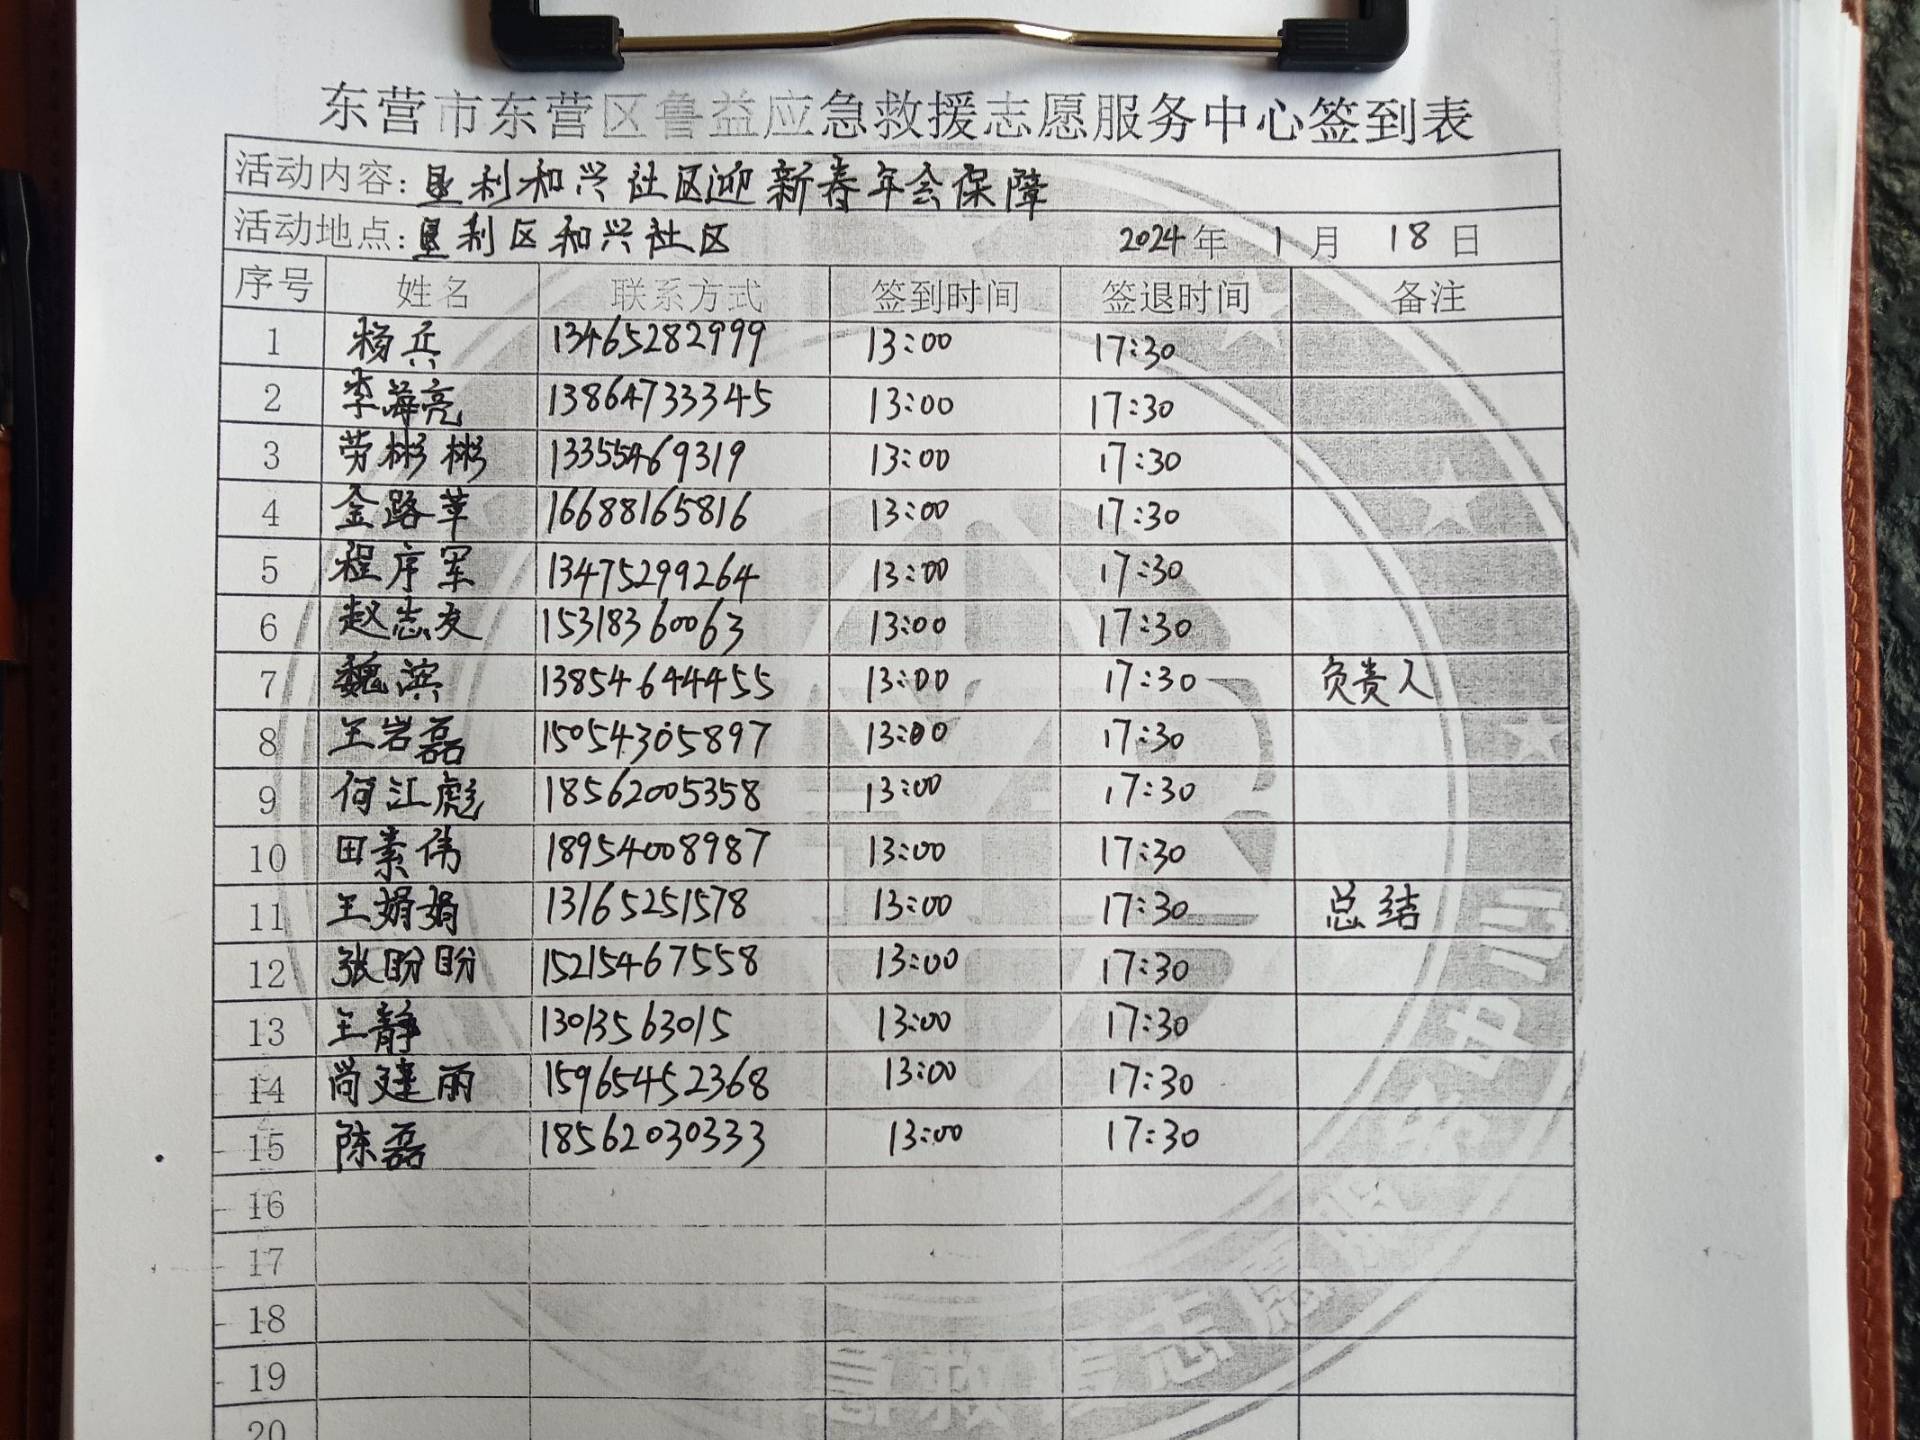 东营市东营区鲁益应急救援志愿服务中心签到表
活动内容:垦利和兴社区迎新春年会保障
活动地点:垦利区和兴社区 2024年 1月 18日
序号 姓名 联系方式 签到时间 签退时间 备注
1 杨兵 13465282999 13:00 17:30
2 李海亮 13864733345 13:00 17:30
3 劳彬彬 13355469319 13:00 17:30
4 金路苹 16688165816 13:00 17:30
5 程序军 13475299264 13:00 17:30
6 赵志友 15318360063 13:00 17:30
7 魏滨 13854644455 13:00 17:30 负责人
8 王岩磊 15054305897 13:00 17:30
9 何江彪 18562005358 13:00 17:30
10 田素伟 18954008987 13:00 17:30
11 王娟娟 13165251578 13:00 17:30 总结
12 张盼盼 15215467558 13:00 17:30
13 王静 13013563015 13:00 17:30
14 尚建丽 15965452368 13:00 17:30
15 陈磊 18562030333 13:00 17:30
16
17
18
19
20